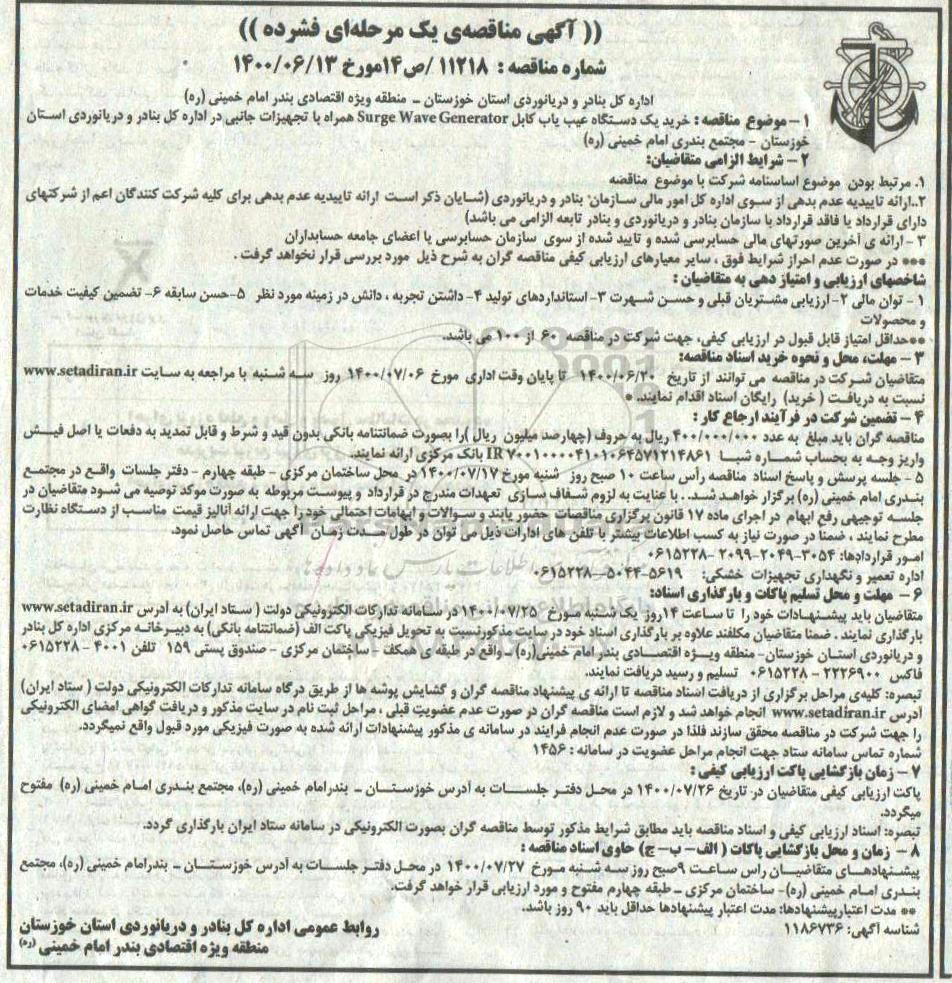 (( آگهی مناقصه‌ی یک مرحله‌ای فشرده ))
شماره مناقصه : ۱۱۲۱۸ /ص۱۴مورخ ۱۴۰۰/۰۶/۱۳
اداره کل بنادر و دریانوردی استان خوزستان – منطقه ویژه اقتصادی بندر امام خمینی (ره)
۱ – موضوع مناقصه : خرید یک دستگاه عیب یاب کابل Surge Wave Generator همراه با تجهیزات جانبی در اداره کل بنادر و دریانوردی استان
خوزستان – مجتمع بندری امام خمینی (ره)
۲ – شرایط الزامی متقاضیان:
۱. مرتبط بودن موضوع اساسنامه شرکت با موضوع مناقصه
۲..ارائه تاییدیه عدم بدهی از سوی اداره کل امور مالی سازمان بنادر و دریانوردی (شایان ذکر است ارائه تاییدیه عدم بدهی برای کلیه شرکت کنندگان اعم از شرکتهای
دارای قرارداد یا فاقد قرارداد با سازمان بنادر و دریانوردی و بنادر تابعه الزامی می باشد)
۳ – ارائه ی آخرین صورتهای مالی حسابرسی شده و تایید شده از سوی سازمان حسابرسی یا اعضای جامعه حسابداران
*** در صورت عدم احراز شرایط فوق ، سایر معیارهای ارزیابی کیفی مناقصه گران به شرح ذیل مورد بررسی قرار نخواهد گرفت .
شاخصهای ارزیابی و امتیاز دهی به متقاضیان :
۱ – توان مالی ۲- ارزیابی مشتریان قبلی و حسن شهرت ۳- استانداردهای تولید ۴- داشتن تجربه ، دانش در زمینه مورد نظر ۵-حسن سابقه ۶- تضمین کیفیت خدمات
و محصولات
**حداقل امتیاز قابل قبول در ارزیابی کیفی، جهت شرکت در مناقصه ۶۰ از ۱۰۰ می باشد.
۳ – مهلت، محل و نحوه خرید اسناد مناقصه:
متقاضیان شرکت در مناقصه می توانند از تاریخ ۱۴۰۰/۰۶/۲۰ تا پایان وقت اداری مورخ ۱۴۰۰/۰۷/۰۶ روز سه شنبه با مراجعه به سایت www.setadiran.ir
نسبت به دریافت ( خرید) رایگان اسناد اقدام نمایند. *
۴ – تضمین شرکت در فرآیند ارجاع کار :
مناقصه گران باید مبلغ به عدد ۴۰۰/۰۰۰/۰۰۰ ریال به حروف (چهارصد میلیون ریال )را بصورت ضمانتنامه بانکی بدون قید و شرط و قابل تمدید به دفعات یا اصل فیش
واریز وجه به بحساب شماره شبا IR ۷۰۰۱۰۰۰۰۴۱۰۱۰۶۴۵۷۱۲۱۴۸۶۱ بانک مرکزی ارائه نمایند.
۵ – جلسه پرسش و پاسخ اسناد مناقصه رأس ساعت ۱۰ صبح روز شنبه مورخ ۱۴۰۰/۰۷/۱۷ در محل ساختمان مرکزی - طبقه چهارم - دفتر جلسات واقع در مجتمع
بندری امام خمینی (ره) برگزار خواهد شد. . با عنایت به لزوم شفاف سازی تعهدات مندرج در قرارداد و پیوست مربوطه به صورت موکد توصیه می شود متقاضیان در
جلسه توجیهی رفع ابهام در اجرای ماده ۱۷ قانون برگزاری مناقصات حضور یابند و سوالات و ابهامات احتمالی خود را جهت ارائه آنالیز قیمت مناسب از دستگاه نظارت
مطرح نمایند ، ضمنا در صورت نیاز به کسب اطلاعات بیشتر با تلفن های ادارات ذیل می توان در طول مدت زمان آگهی تماس حاصل نمود.
امور قراردادها: ۳۰۵۴-۲۰۴۹-۲۰۹۹ -۰۶۱۵۲۲۸
اداره تعمیر و نگهداری تجهیزات خشکی: ۵۶۱۹-۵۰۴۴ -۰۶۱۵۲۲۸
۶ – مهلت و محل تسلیم پاکات و بارگذاری اسناد:
متقاضیان باید پیشنهادات خود را تا ساعت ۱۴ روز یک شنبه مورخ ۱۴۰۰/۰۷/۲۵ در سامانه تدارکات الکترونیکی دولت ( ستاد ایران) به آدرس www.setadiran.ir
بارگذاری نمایند . ضمنا متقاضیان مکلفند علاوه بر بارگذاری اسناد خود در سایت مذکورنسبت به تحویل فیزیکی پاکت الف (ضمانتنامه بانکی) به دبیرخانه مرکزی اداره کل بنادر
و دریانوردی استان خوزستان- منطقه ویژه اقتصادی بندر امام خمینی(ره) – واقع در طبقه ی همکف - ساختمان مرکزی - صندوق پستی ۱۵۹ تلفن ۴۰۰۱ – ۰۶۱۵۲۲۸
فاکس ۲۲۲۶۹۰۰ – ۰۶۱۵۲۲۸ تسلیم و رسید دریافت نمایند.
تبصره: کلیه‌ی مراحل برگزاری از دریافت اسناد مناقصه تا ارائه ی پیشنهاد مناقصه گران و گشایش پوشه ها از طریق درگاه سامانه تدارکات الکترونیکی دولت ( ستاد ایران)
آدرس www.setadiran.ir انجام خواهد شد و لازم است مناقصه گران در صورت عدم عضویت قبلی ، مراحل ثبت نام در سایت مذکور و دریافت گواهی امضای الکترونیکی
را جهت شرکت در مناقصه محقق سازند فلذا در صورت عدم انجام فرایند در سامانه ی مذکور پیشنهادات ارائه شده به صورت فیزیکی مورد قبول واقع نمیگردد.
شماره تماس سامانه ستاد جهت انجام مراحل عضویت در سامانه : ۱۴۵۶
۷ – زمان بازگشایی پاکت ارزیابی کیفی :
پاکت ارزیابی کیفی متقاضیان در تاریخ ۱۴۰۰/۰۷/۲۶ در محل دفتر جلسات به آدرس خوزستان – بندرامام خمینی (ره)، مجتمع بندری امام خمینی (ره) مفتوح
میگردد.
تبصره: اسناد ارزیابی کیفی و اسناد مناقصه باید مطابق شرایط مذکور توسط مناقصه گران بصورت الکترونیکی در سامانه ستاد ایران بارگذاری گردد.
۸ – زمان و محل بازگشایی پاکات ( الف- ب- ج) حاوی اسناد مناقصه :
پیشنهادهای متقاضیان راس ساعت ۹صبح روز سه شنبه مورخ ۱۴۰۰/۰۷/۲۷ در محل دفتر جلسات به آدرس خوزستان – بندرامام خمینی (ره)، مجتمع
بندری امام خمینی (ره)- ساختمان مرکزی – طبقه چهارم مفتوح و مورد ارزیابی قرار خواهد گرفت.
** مدت اعتبارپیشنهادها: مدت اعتبار پیشنهادها حداقل باید ۹۰ روز باشد.
شناسه آگهی: ۱۱۸۶۷۳۶
روابط عمومی اداره کل بنادر و دریانوردی استان خوزستان
منطقه ویژه اقتصادی بندر امام خمینی (ره)